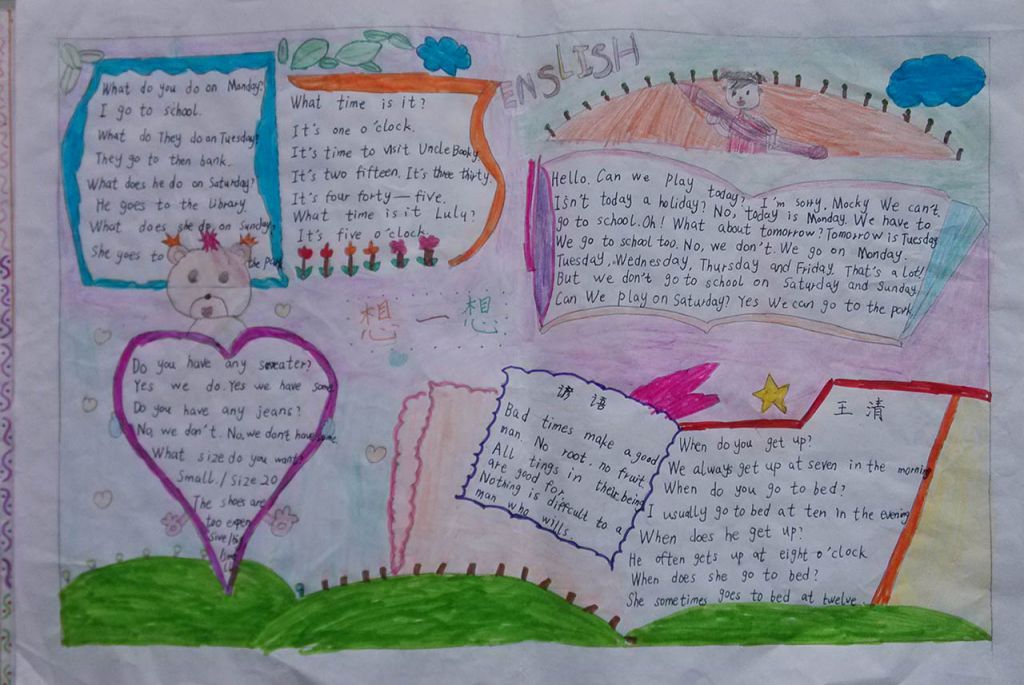 ENSLISH
What do you do on Monday?
I go to school.
What do They do on Tuesday?
They go to then bank.
What does he do on Saturday?
He goes to the Library.
What does she do on Sunday?
She goes to the park
What time is it?
It's one o'clock.
It's time to visit Uncle Booky.
It's two fifteen. It's three thirty.
It's four forty—five.
What time is it Lulu?
It's five o'clock.
Hello. Can we play today?, I'm sorry. Mocky We can't.
Isn't today a holiday? No, today is Monday. We have to
go to school. Oh! What about tomorrow? Tomorrow is Tuesday
We go to school too. No, we don't. We go on Monday.
Tuesday, Wednesday, Thursday and Friday. That's a lot!
But we don't go to school on Saturday and Sunday.
Can We play on Saturday? Yes We can go to the park.
想一想
Do you have any sweater?
Yes we do. Yes we have some
Do you have any jeans?
No, we don't. No, we don't have some
What size do you want?
Small. / Size 20
The shoes are
too expen
sive
谚语
Bad times make a good
man. No root. no fruit
All tings in their being
are good for.
Nothing is difficult to a
man who wills.
王清
When do you get up?
We always get up at seven in the morning
When do you go to bed?
I usually go to bed at ten in the evening
When does he get up?
He often gets up at eight o'clock
When does she go to bed?
She sometimes goes to bed at twelve.